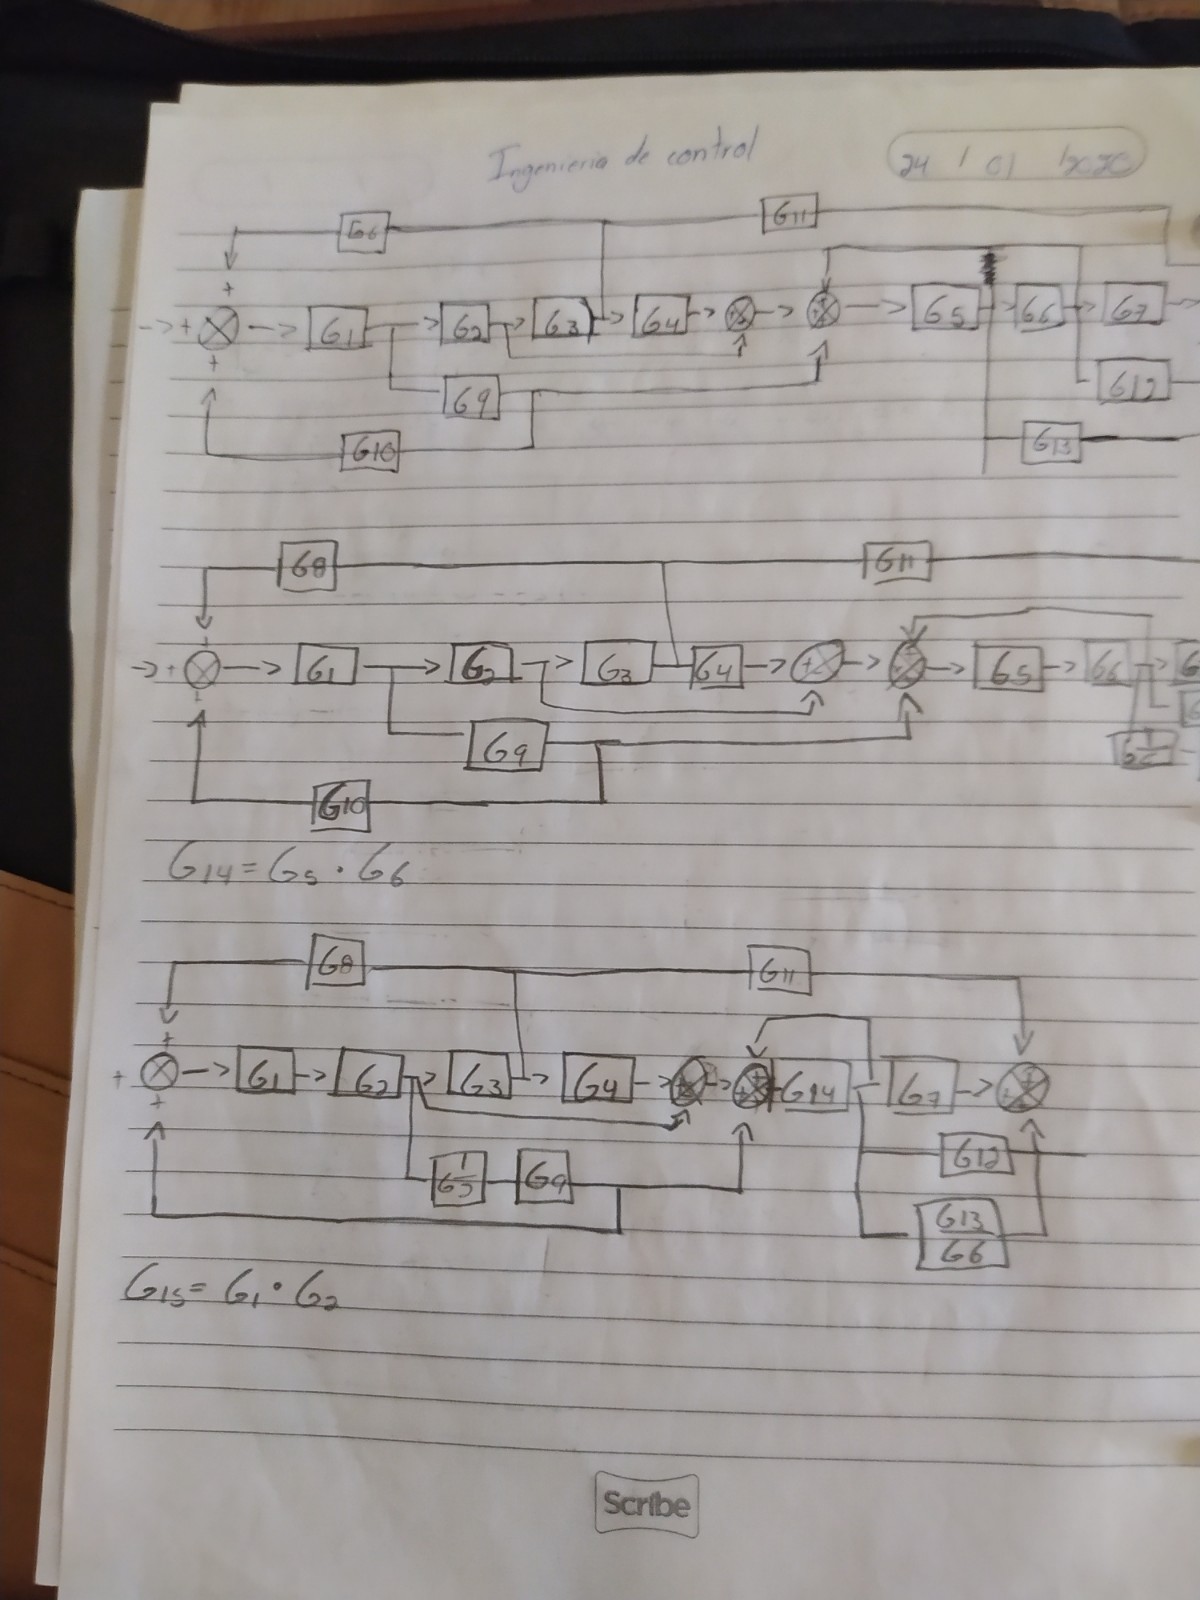 Ingenieria de control
24 / 01 /2020
G6 G11
+
+ G1 G2 G3 G4 + + G5 G6 G7
+
G9 G12
G10 G13
G8 G11
+
+ G1 G2 G3 G4 + G5 G6 G
G9
G10
G14 = G5 · G6
G8 G11
+
+ G1 G2 G3 G4 + + G14 G7 +
+
G12
1/G2 G9
G13
G6
G15 = G1 · G2
Scribe